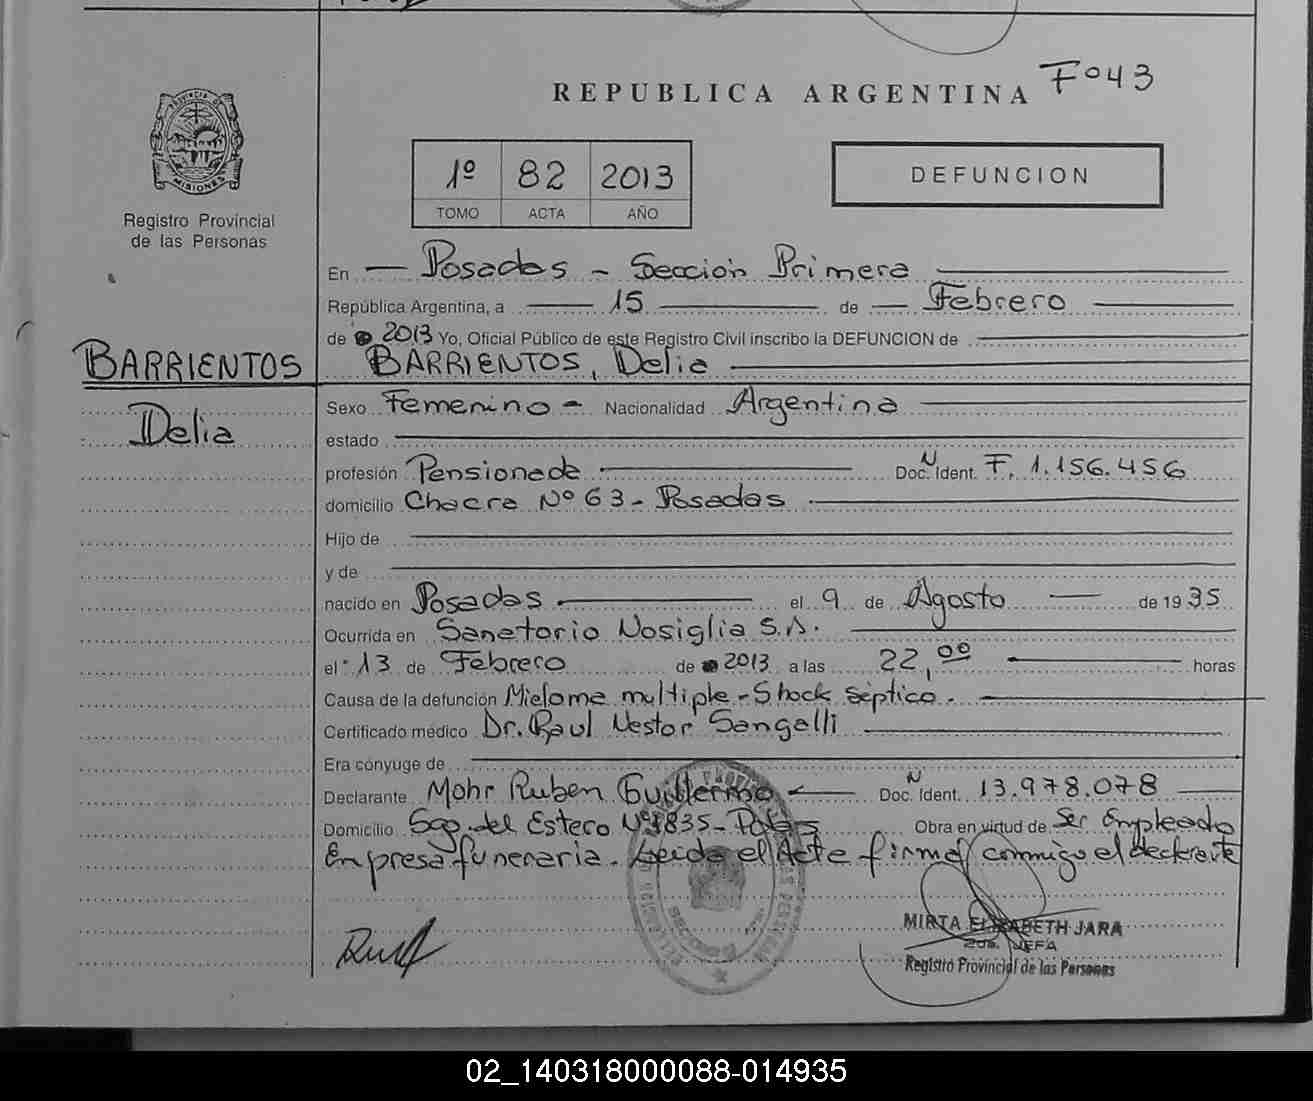 REPUBLICA ARGENTINA Fº43
PROVINCIA DE
MISIONES
Registro Provincial
de las Personas
1º 82 2013
TOMO ACTA AÑO
DEFUNCION
En Posadas - Sección Primera
República Argentina, a 15 de Febrero
de 2013 Yo, Oficial Público de este Registro Civil inscribo la DEFUNCION de
BARRIENTOS BARRIENTOS, Delia
Delia
Sexo Femenino - Nacionalidad Argentina
estado
profesión Pensionada Doc. N Ident. F. 1.156.456
domicilio Chacra Nº 63 - Posadas
Hijo de
y de
nacido en Posadas el 9 de Agosto de 19 35
Ocurrida en Sanatorio Nosiglia S.A.
el 13 de Febrero de 2013 a las 22,00 horas
Causa de la defunción Mieloma multiple - Shock séptico.
Certificado médico Dr. Raul Nestor Sangalli
Era cónyuge de
Declarante Mohr Ruben Guillermo Doc. N Ident. 13.978.078
Domicilio Sgo. del Estero Nº 3835 - Obra en virtud de Ser Empleado
Empresa funeraria. Leída el Acta firma conmigo el declarante
MIRTA ELIZABETH JARA
JEFA
Registro Provincial de las Personas
02_140318000088-014935